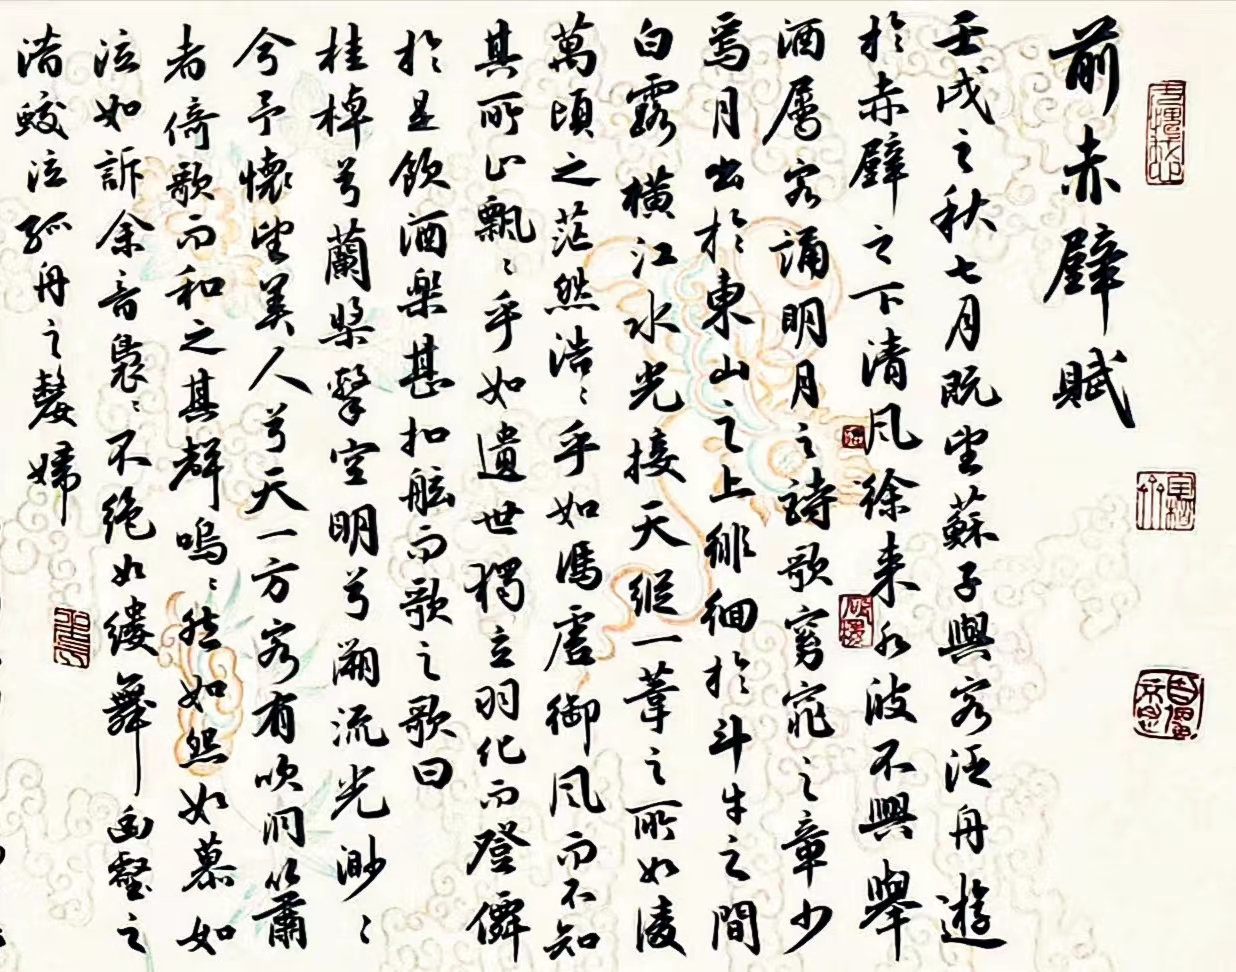 前赤壁賦
壬戌之秋七月既望蘇子與客泛舟遊
於赤壁之下清风徐来水波不興舉
酒屬客誦明月之詩歌窈窕之章少
焉月出於東山之上徘徊於斗牛之間
白露橫江水光接天縱一葦之所如凌
萬頃之茫然浩〻乎如馮虛御风而不知
其所止飄〻乎如遺世獨立羽化而登僊
於是飲酒樂甚扣舷而歌之歌曰
桂棹兮蘭槳擊空明兮溯流光渺〻
兮予懷望美人兮天一方客有吹洞簫
者倚歌而和之其聲嗚〻然如怨如慕如
泣如訴余音裊〻不绝如缕舞幽壑之
潜蛟泣孤舟之嫠婦